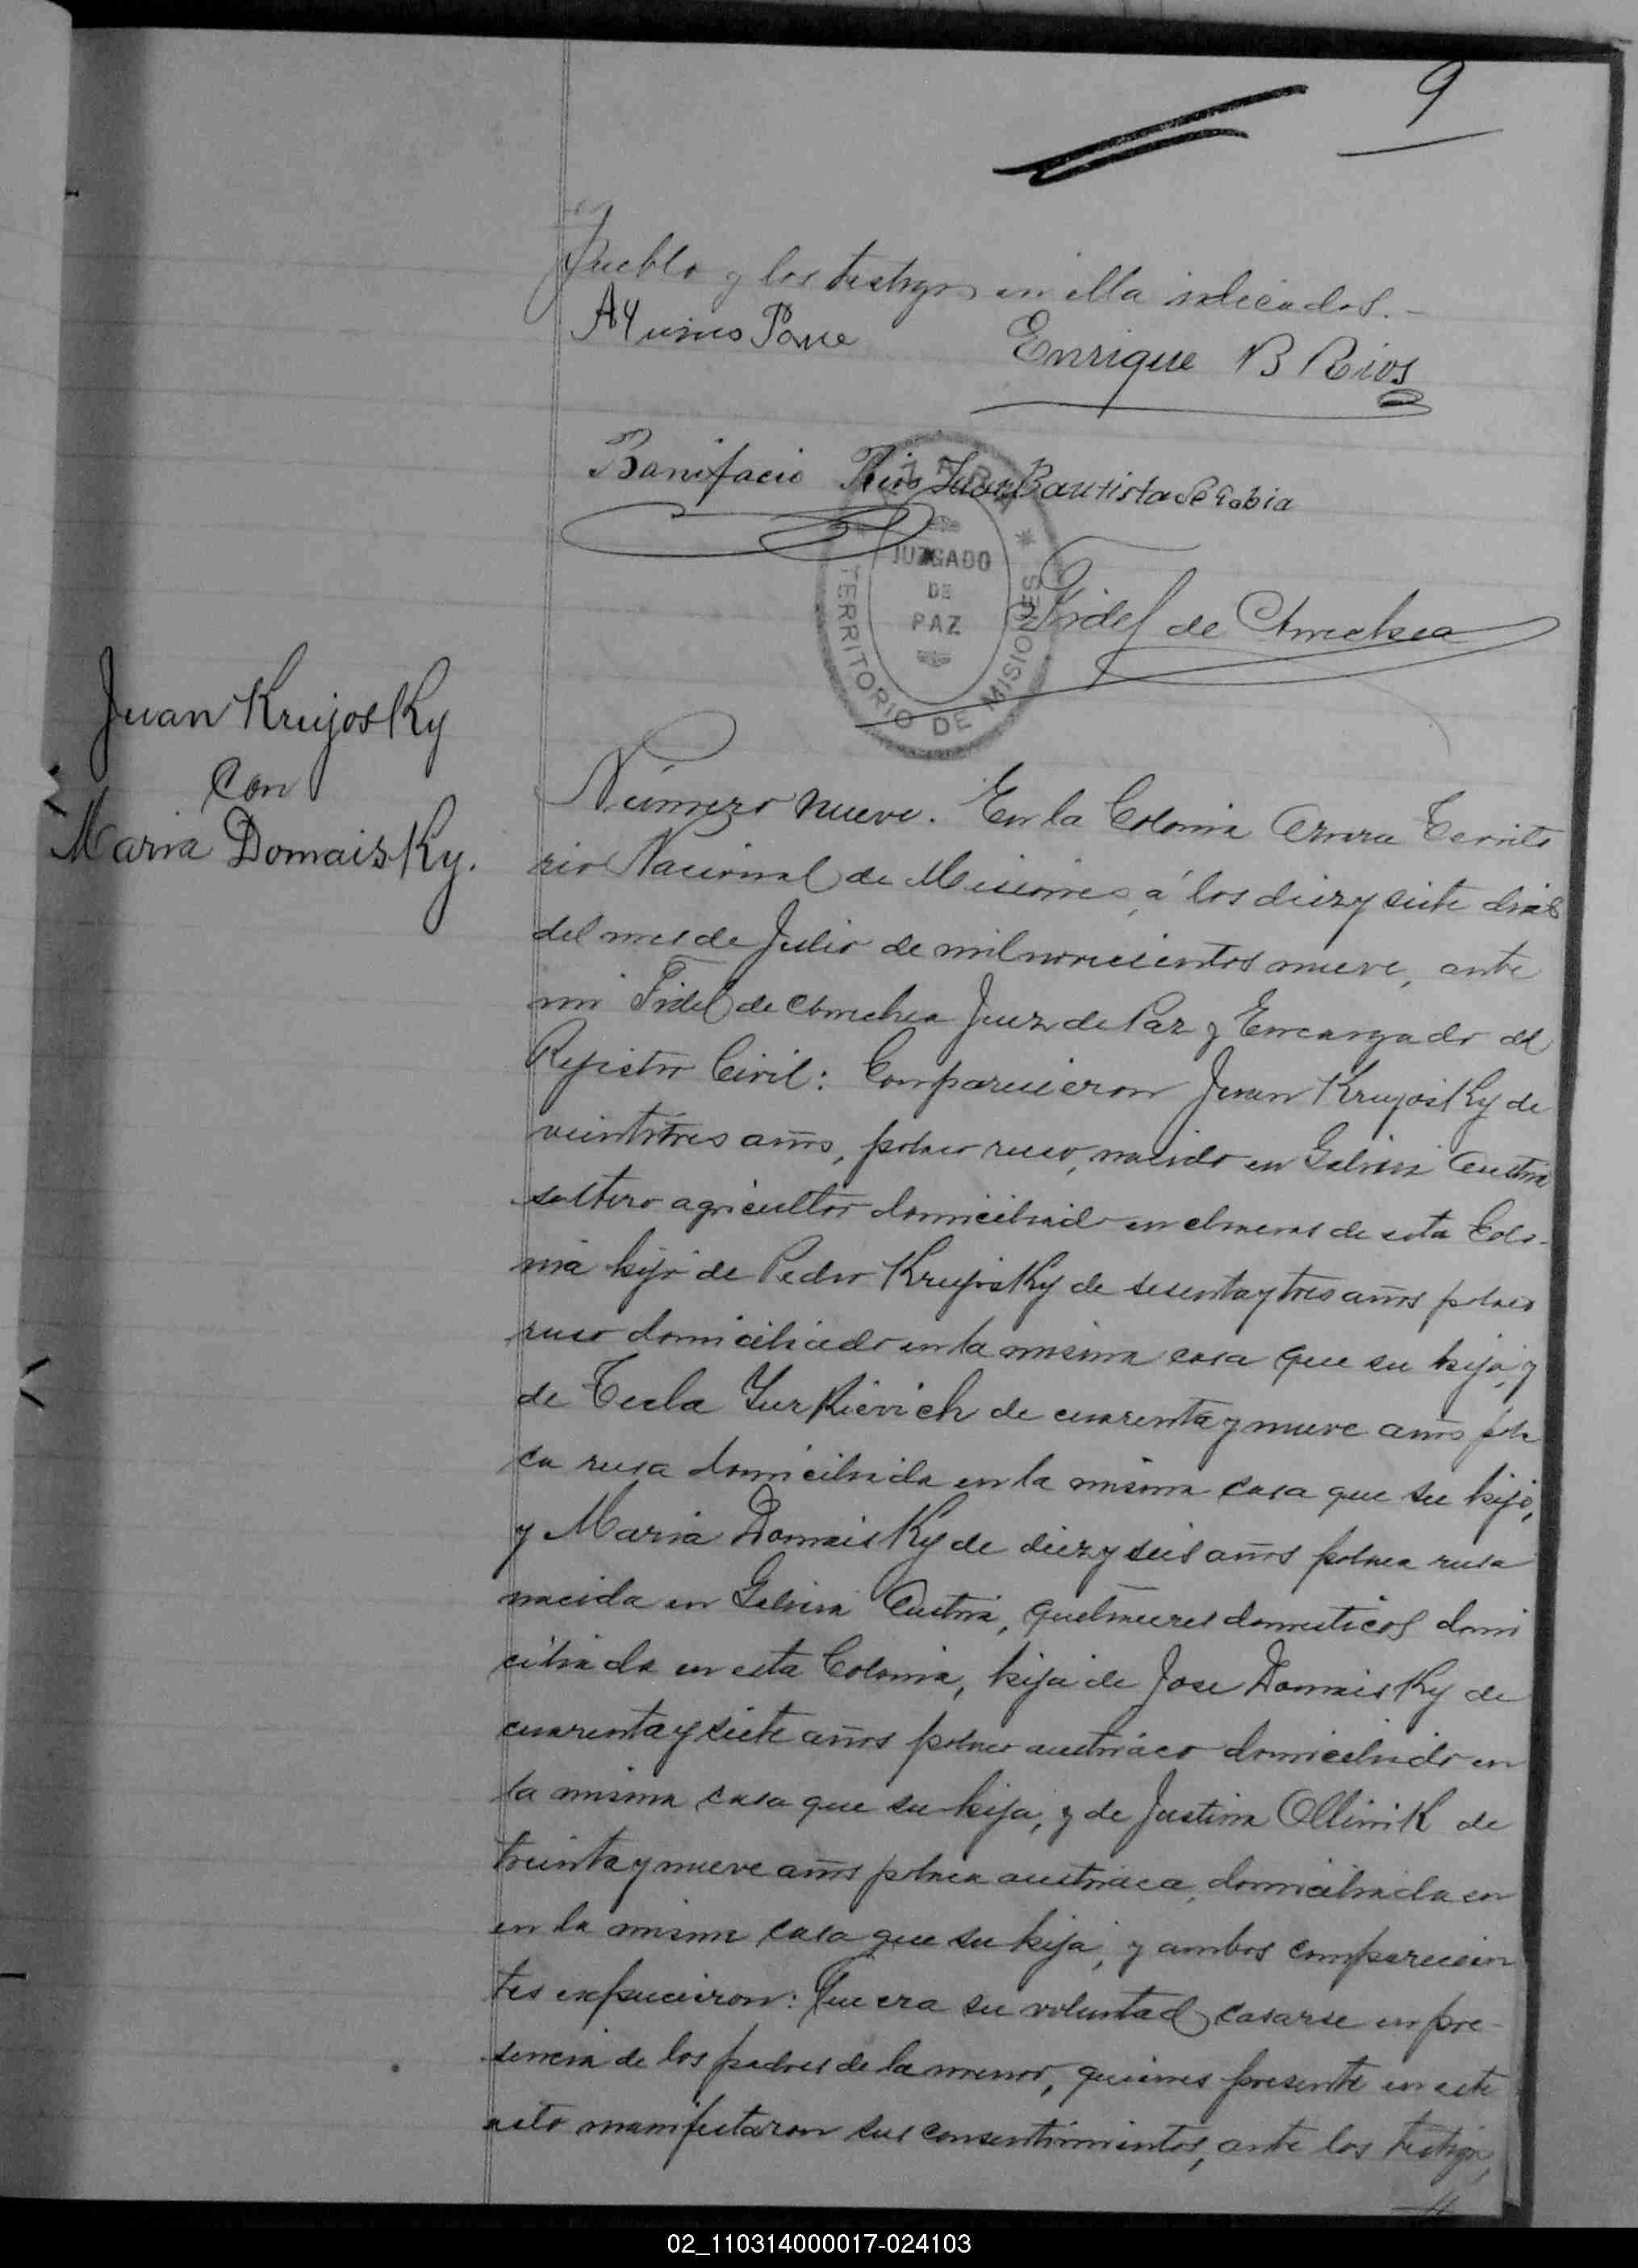 9
Pueblo y los testigos en ella indicados.-
Enrique B Rios
Bonifacio Rios Juan Bautista
JUZGADO
DE
PAZ
TERRITORIO DE MISIONES
Fidel de Amechea
Juan Krujosky
con
Maria Domaisky.
Número nueve. En la Colonia Azara Territo
rio Nacional de Misiones, á los diez y siete dias
del mes de Julio de mil novecientos nueve, ante
mi Fidel de Amechea Juez de Paz y Encargado del
Registro Civil: Comparecieron Juan Krujosky de
veintitres años, polaco ruso, nacido en Galicia Austria
soltero agricultor domiciliado en chacras de esta Colo-
nia hijo de Pedro Krujosky de sesenta y tres años polaco
ruso domiciliado en la misma casa que su hijo, y
de Tecla Yurkievich de cuarenta y nueve años pola
ca rusa domiciliada en la misma casa que su hijo,
y Maria Domaisky de diez y seis años polaca rusa
nacida en Galicia Austria, quehaceres domesticos domi
ciliada en esta Colonia, hija de Jose Domaisky de
cuarenta y siete años polaco austriaco domiciliado en
la misma casa que su hija, y de Justina Ollinik de
treinta y nueve años polaca austriaca, domiciliada en
en la misma casa que su hija, y ambos comparecien
tes expucieron: Que era su voluntad casarse en pre-
sencia de los padres de la menor, quienes presente en este
acto manifestaron sus consentimientos, ante los testigos,
02_110314000017-024103